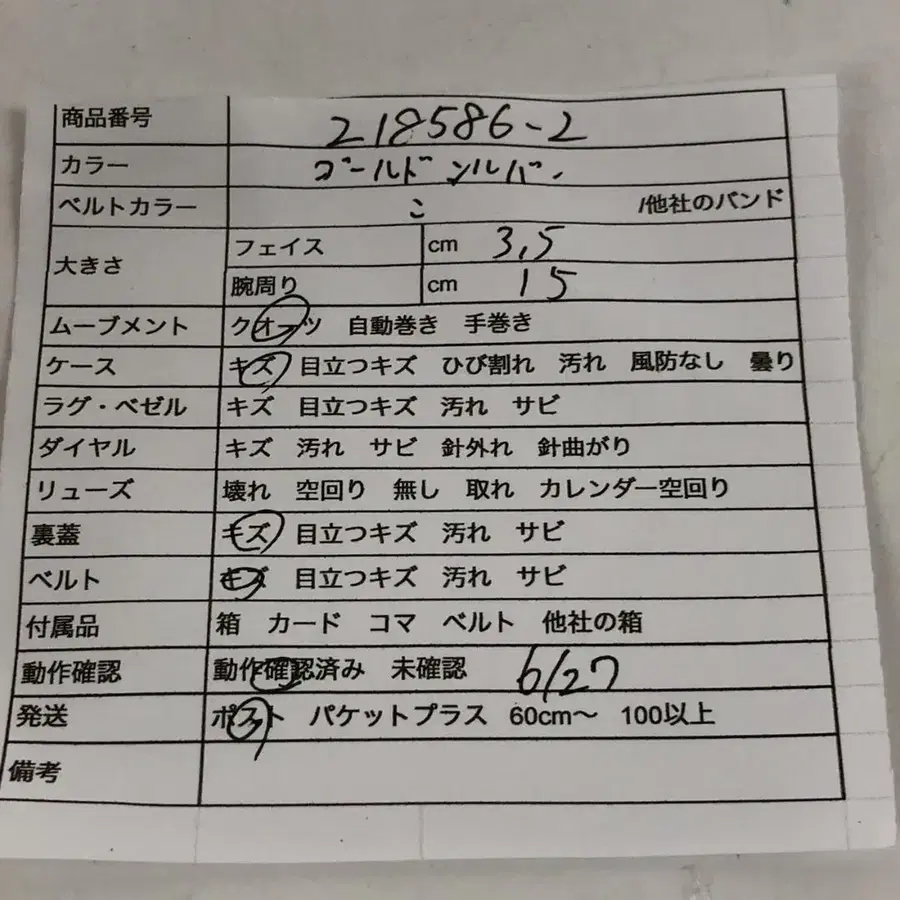 商品番号 218586-2
カラー ゴールド シルバー
ベルトカラー こ /他社のバンド
大きさ フェイス cm 3,5
腕周り cm 15
ムーブメント クオーツ 自動巻き 手巻き
ケース キズ 目立つキズ ひび割れ 汚れ 風防なし 曇り
ラグ・ベゼル キズ 目立つキズ 汚れ サビ
ダイヤル キズ 汚れ サビ 針外れ 針曲がり
リューズ 壊れ 空回り 無し 取れ カレンダー空回り
裏蓋 キズ 目立つキズ 汚れ サビ
ベルト キズ 目立つキズ 汚れ サビ
付属品 箱 カード コマ ベルト 他社の箱
動作確認 動作確認済み 未確認 6/27
発送 ポスト パケットプラス 60cm〜 100以上
備考